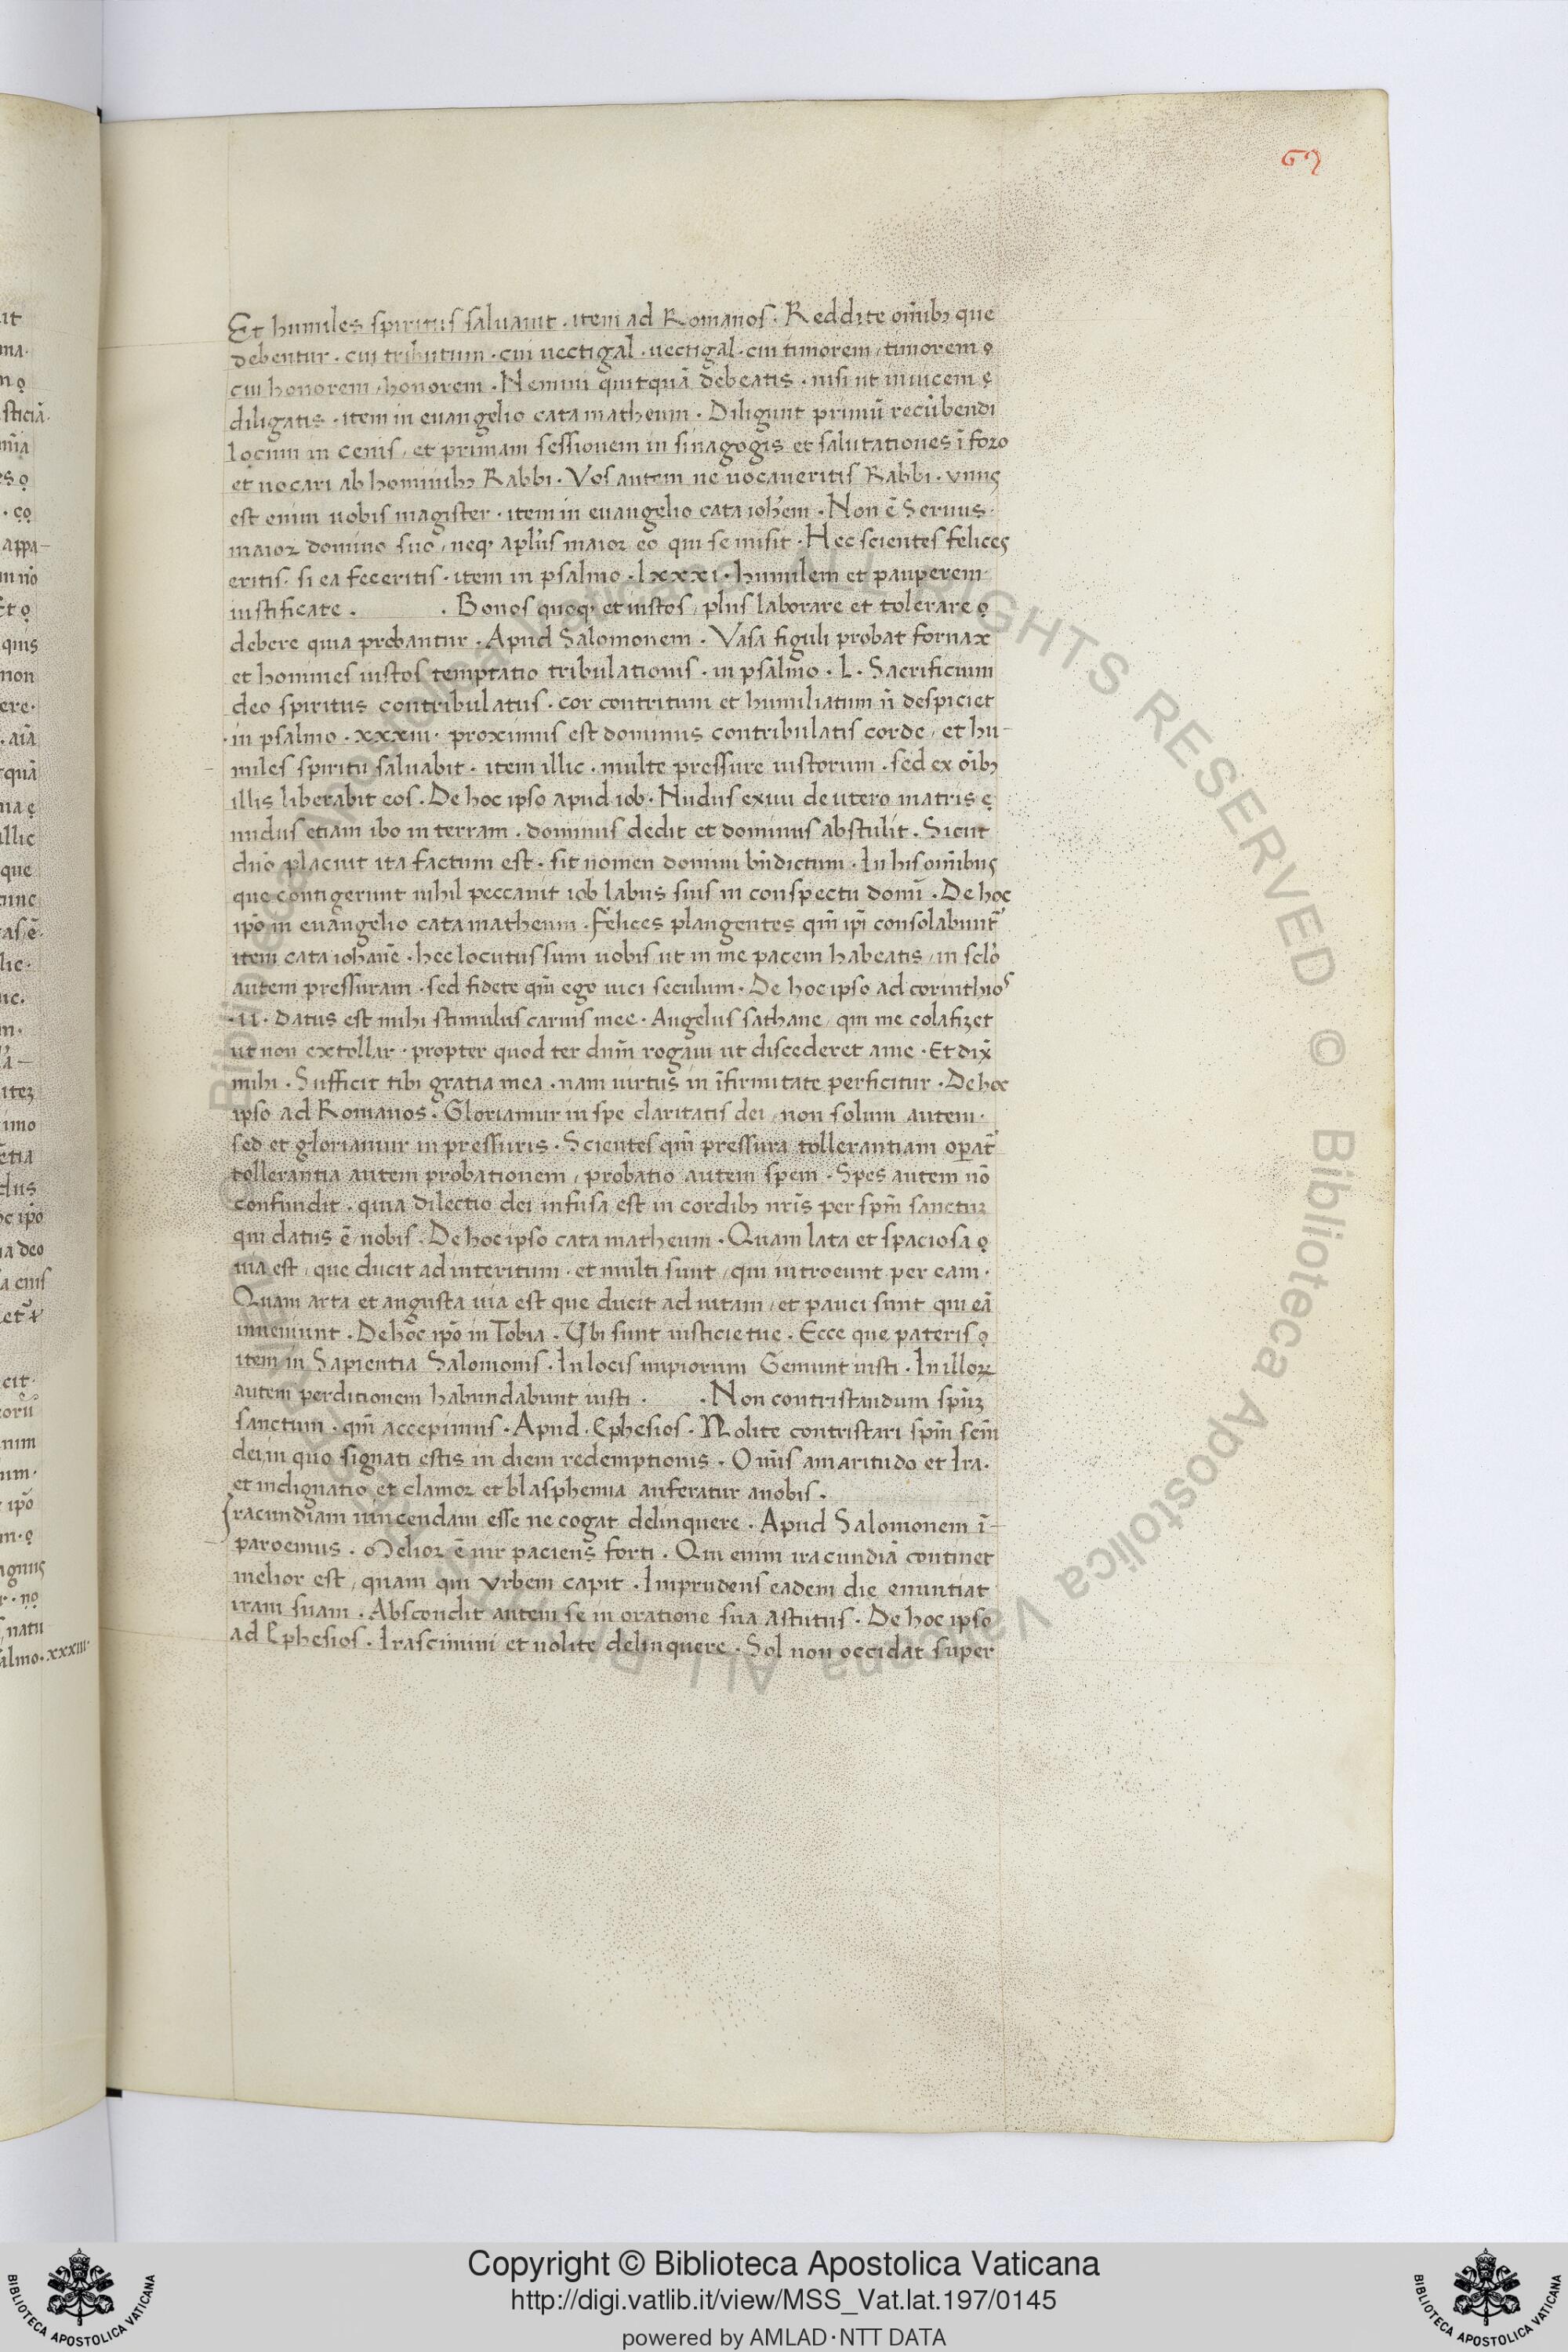 67
Et humiles spiritus saluauit · item ad Romanos · Reddite om̄ibꝫ que
debentur · cui tributum · cui uectigal · uectigal · cui timorem, timorem
cui honorem, honorem · Nemini quitquā debeatis · nisi ut inuicem
diligatis · item in euangelio cata matheum · Diligunt primū recūbendi
locum in cenis, et primam sessionem in sinagogis et salutationes ī foro
et uocari ab hominibꝫ Rabbi · Vos autem ne uocaueritis Rabbi · vnus
est enim uobis magister · item in euangelio cata ioh̄em · Non ē Seruus ·
maior domino suo, neqꝫ apl's maior eo qui se misit · Hec scientes felices
eritis · si ea feceritis · item in psalmo · lxxxi · humilem et pauperem
iustificate · · Bonos quoqꝫ et iustos, plus laborare et tolerare
debere quia probantur · Apud Salomonem · Vasa figuli probat fornax
et homines iustos temptatio tribulationis · in psalmo · L · Sacrificium
deo spiritus contribulatus · cor contritum et humiliatum n̄ despiciet
· in psalmo · xxxiii · proximus est dominus contribulatis corde, et hu-
miles spiritu saluabit · item illic · multe pressure iustorum · sed ex oībꝫ
illis liberabit eos · De hoc ipso apud iob · Nudus exiui de utero matris
nudus etiam ibo in terram · dominus dedit et dominus abstulit · Sicut
dn̄o placuit ita factum est · sit nomen domini bn̄dictum · In his om̄ibus
que contigerunt nihil peccauit iob labiis suis in conspectu domī · De hoc
ip̄o in euangelio cata matheum · Felices plangentes qm̄ ip̄i consolabunt᷑
item cata iohan̄e · hec locutus sum uobis ut in me pacem habeatis, in scl̄o
autem pressuram · sed fidete qm̄ ego uici seculum · De hoc ipso ad corinthios
· ii · datus est mihi stimulus carnis mee · Angelus sathane, qui me colafizet
ut non extollar · propter quod ter dn̄m rogaui ut discederet a me · Et dix̄
mihi · Sufficit tibi gratia mea · nam uirtus in īfirmitate perficitur · De hoc
ipso ad Romanos · Gloriamur in spe claritatis dei, non solum autem ·
sed et gloriamur in pressuris · Scientes qm̄ pressura tollerantiam oꝑat᷑
tollerantia autem probationem, probatio autem spem · Spes autem nō
confundit · quia dilectio dei infusa est in cordibꝫ nr̄is per spm̄ sanctuꝫ
qui datus ē nobis · De hoc ipso cata matheum · Quam lata et spaciosa
uia est, que ducit ad interitum · et multi sunt, qui introeunt per eam ·
Quam arta et angusta uia est que ducit ad uitam, et pauci sunt qui eā
inueniunt · De hoc ip̄o in Tobia · Vbi sunt iusticie tue · Ecce que pateris
item in Sapientia Salomonis · In locis impiorum Gemunt iusti · In illoꝝ
autem perditionem habundabunt iusti · · Non contristandum spm̄
sanctum · qm̄ accepimus · Apud · Ephesios · Nolite contristari spm̄ scm̄
dei, in quo signati estis in diem redemptionis · Om̄is amaritudo et Ira ·
et indignatio et clamor et blasphemia auferatur a uobis ·
Iracundiam uincendam esse ne cogat delinquere · Apud Salomonem ī-
paroemiis · Melior ē uir paciens forti · Qui enim iracundiā continet
melior est, quam qui vrbem capit · Imprudens eadem die enuntiat
iram suam · Abscondit autem se in oratione sua Astutus · De hoc ipso
ad Ephesios · Irascimini et nolite delinquere · Sol non occidat super
Copyright © Biblioteca Apostolica Vaticana
http://digi.vatlib.it/view/MSS_Vat.lat.197/0145
powered by AMLAD·NTT DATA